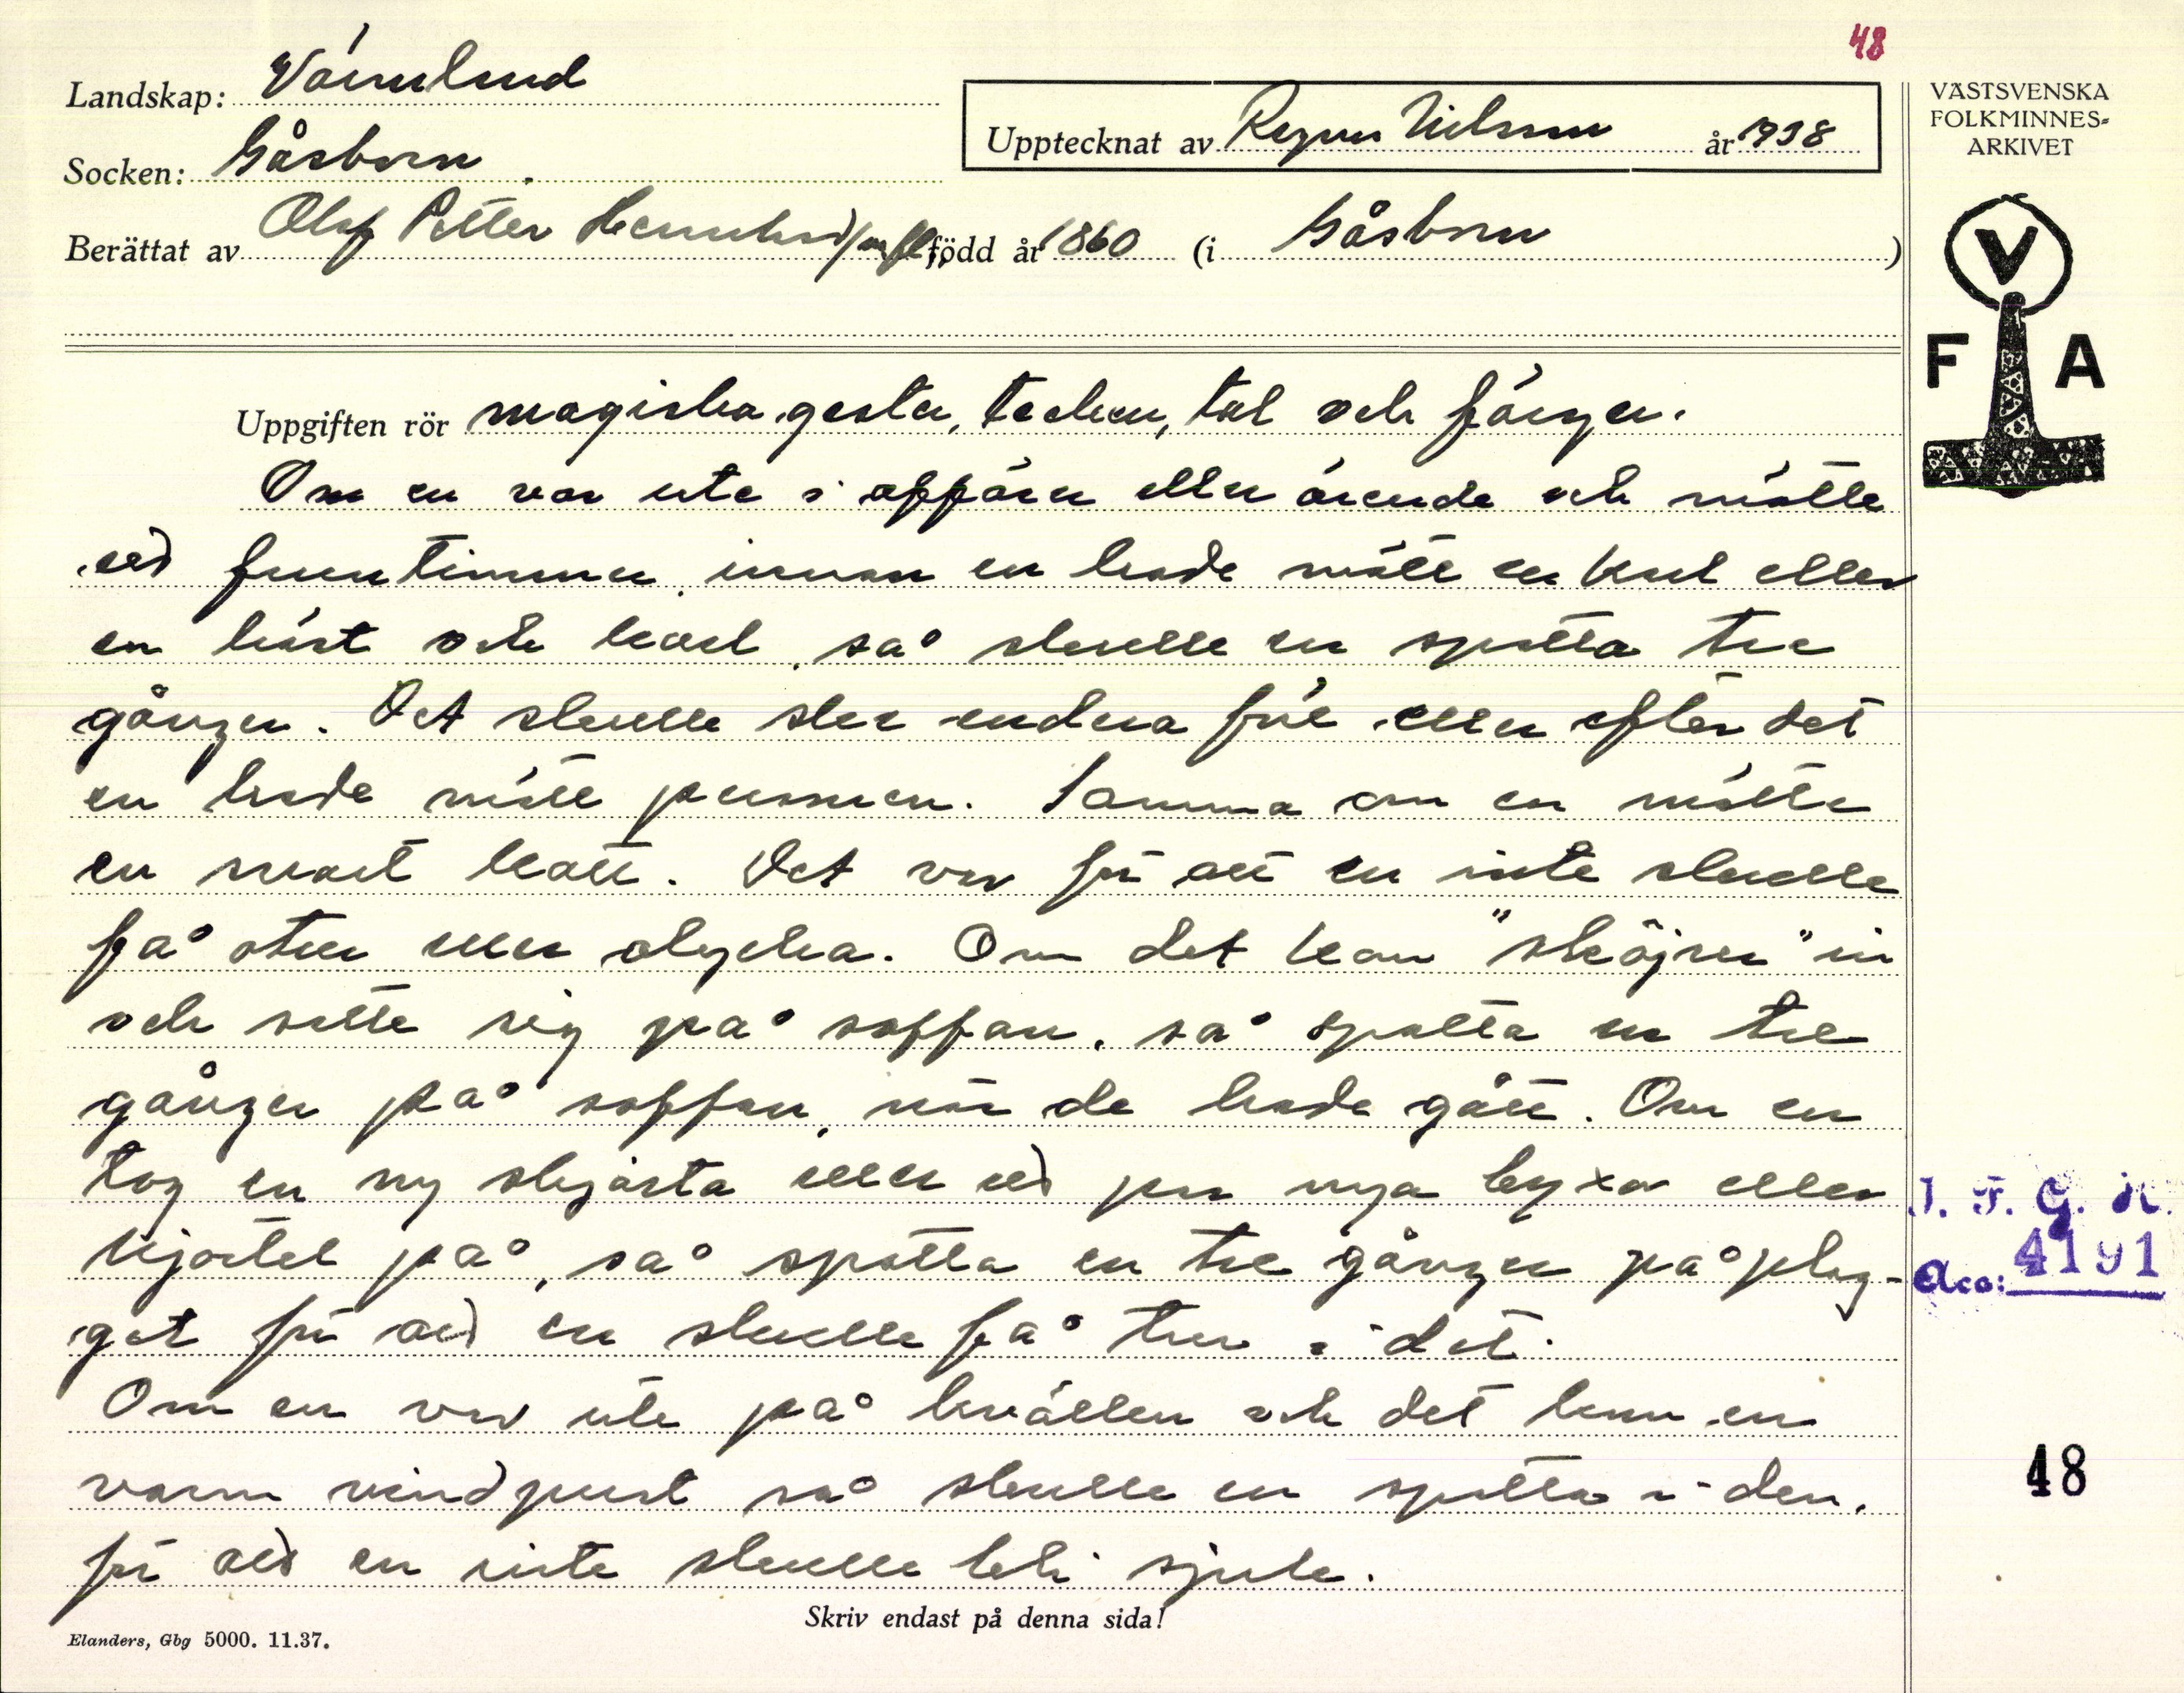 48
Landskap: Värmland
Socken: Gåsborn
Upptecknat av Ragnar Nilsson år 1938
Berättat av Olof Petter Hermelund m fl. född år 1860 (i Gåsborn)
VÄSTSVENSKA
FOLKMINNES-
ARKIVET
V
F A
Uppgiften rör magiska gester, tecken, tal och färger.
Om en var ute i affärer eller ärende och mötte
ed fruntimmer, innan en hade mött en karl eller
en häst och karl, så skulle en spotta tre
gånger. Det skulle ske endera för eller efter det
en hade mött personen. Samma om en mötte
en svart katt. Det var för att en inte skulle
få otur eller olycka. Om det kom "sköjrer" in
och sette sig på soffan, så spotta en tre
gånger på soffan, när de hade gått. Om en
tog en ny skjorta eller ed par nya byxor eller
kjortel på, så spotta en tre gånger på plag-
get för ad en skulle få tur i det.
Om en var ute på kvällen och det kom en
varm vindpust så skulle en spotta i den,
för ad en inte skulle bli sjuk.
I. F. G. H.
Acc: 4191
48
Skriv endast på denna sida!
Elanders, Gbg 5000. 11.37.